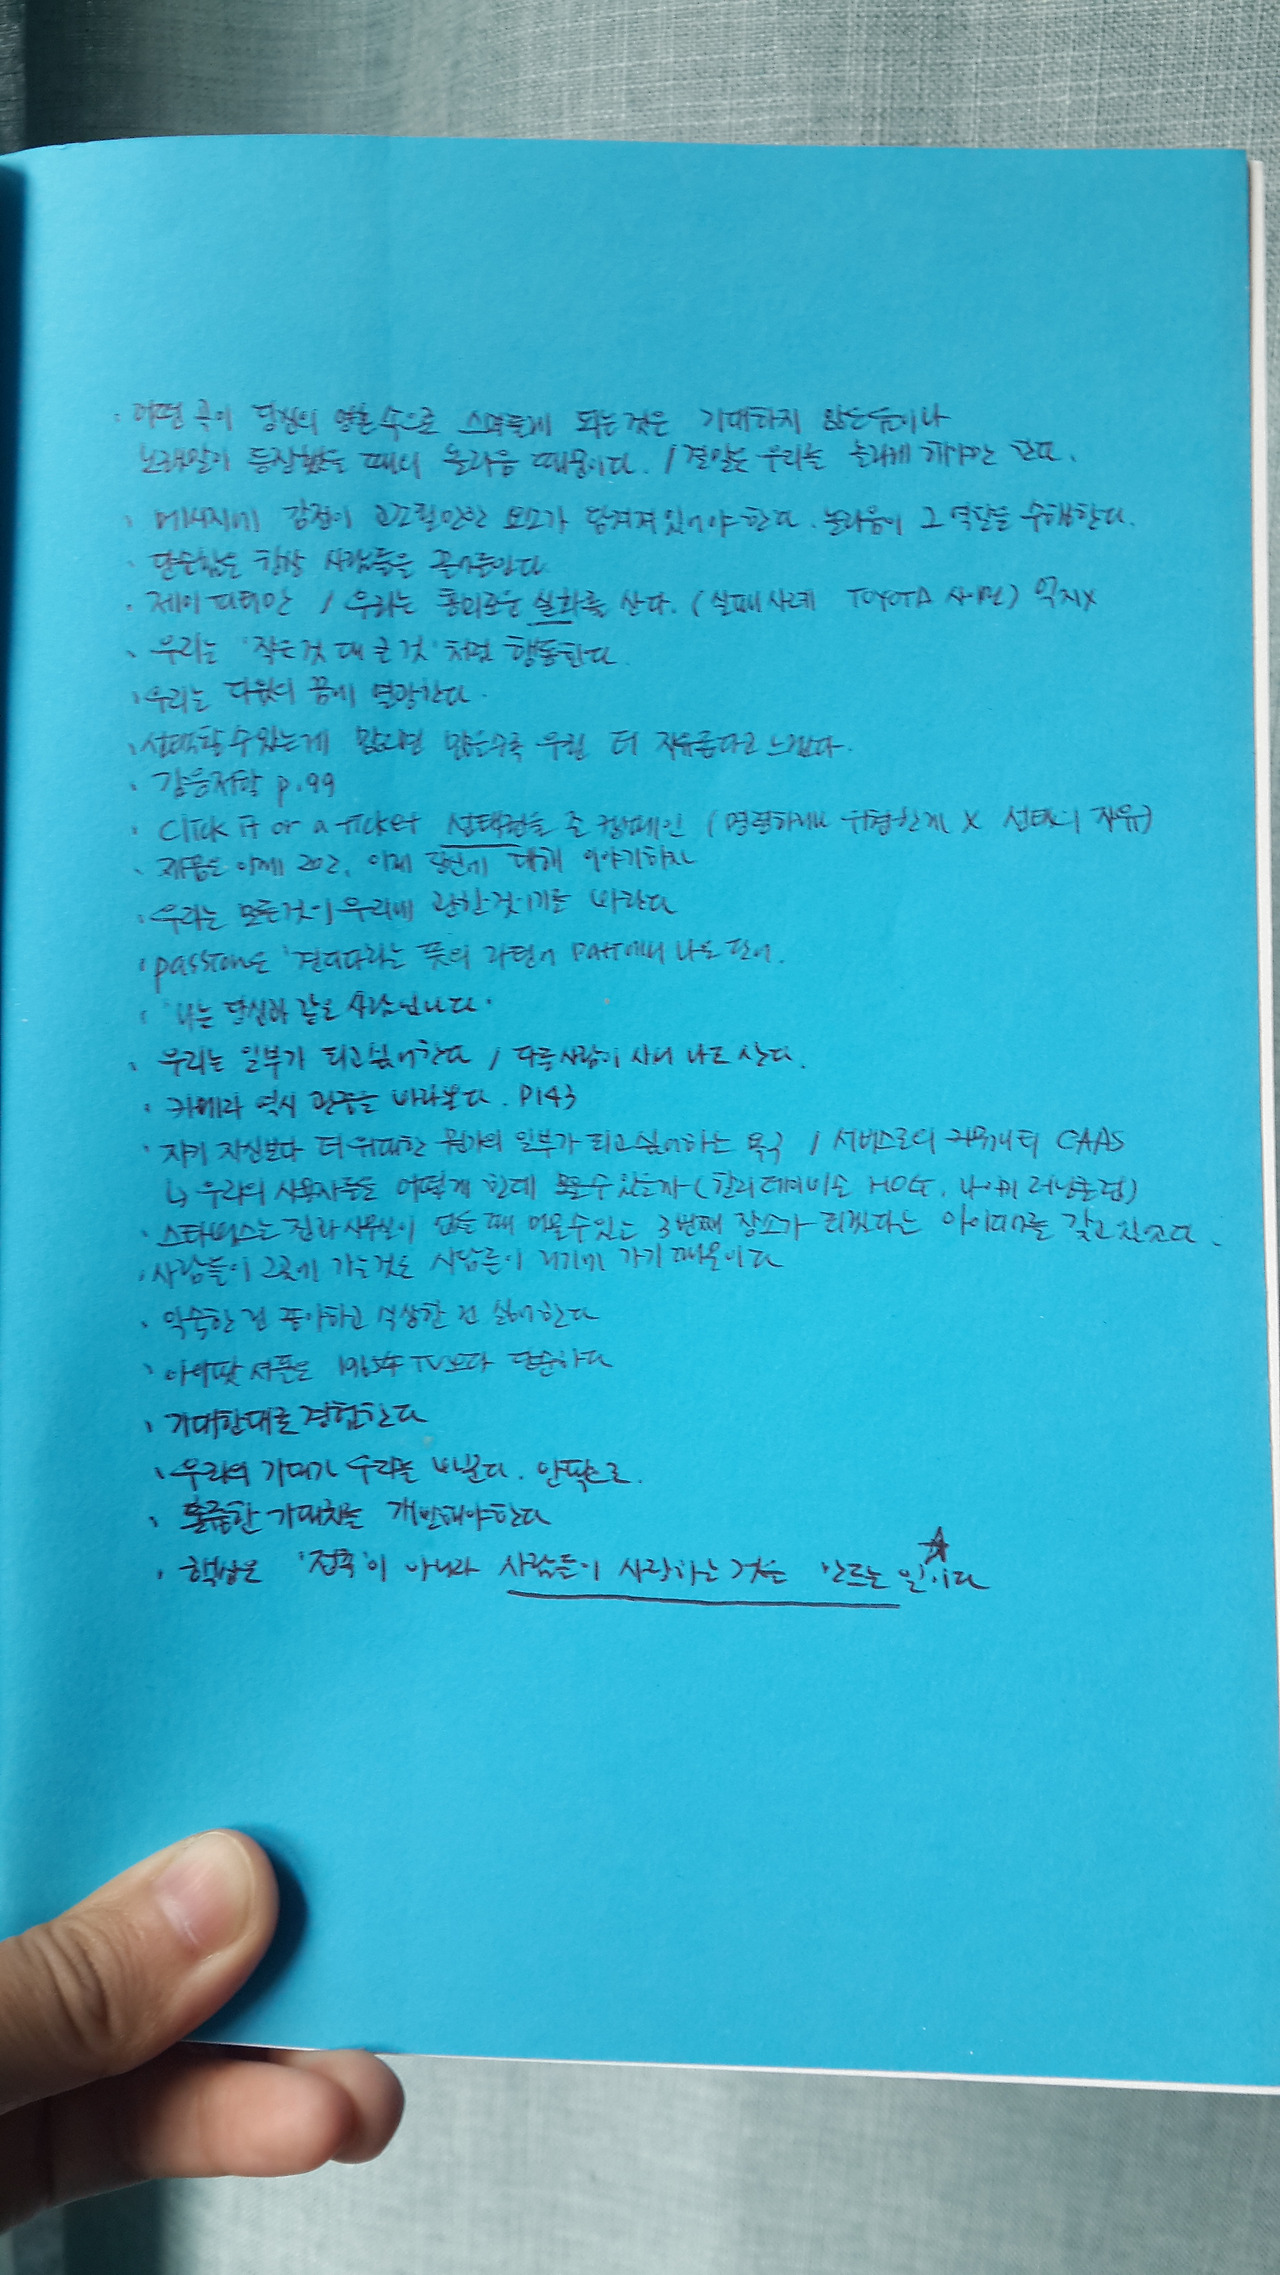 · 어떤 곡이 당신의 영혼 속으로 스며들게 되는것은 기대하지 않은 음이나
노랫말이 등장했을 때의 놀라움 때문이다. / 결말은 우리를 놀라게 해야만 한다.
· 메시지에 감정이 고조될만한 요소가 담겨져 있어야 한다. 놀라움이 그 역할을 수행한다.
· 단순함은 항상 사람들을 끌어들인다
· 제이 / 우리는 흥미로운 실화를 산다. (실패사례 TOYOTA 사연) 억지X
· 우리는 '작은것 대 큰것'처럼 행동한다.
· 우리는 다윗의 꿈에 열광한다.
· 선택할 수 있는게 많으면 많을수록 우린 더 자유롭다고 느낀다.
· 감응저항 p.99
· Click it or a ticket 선택권을 준 캠페인 (명령하거나 위협한게 X 선택의 자유)
· 제품은 어제 이제 당신에 대해 이야기하자
· 우리는 모든것이 우리에 관한것이기를 바란다
· passion은 '견디다'라는 뜻의 라틴어 pati에서 나온 단어.
· '나는 당신과 같은 사람입니다.'
· 우리는 일부가 되고 싶어한다 / 다른사람이 사니 나도 산다.
· 카메라 역시 관중을 바라본다. P143
· 자기 자신보다 더 위대한 뭔가의 일부가 되고싶어하는 욕구 / 서비스로의 커뮤니티 CAAS
↳ 우리의 사용자들을 어떻게 한데 모을수 있을까 (할리데이비슨 HOG, 나이키 러닝클럽)
· 스타벅스는 집과 사무실이 닫을 때 머물수있는 3번째 장소가 되겠다는 아이디어를 갖고 있었다.
· 사람들이 그곳에 가는것은 사람들이 거기에 가기 때문이다
· 익숙한 건 좋아하고 식상한 건 싫어한다
· 아이팟 셔플은 1965年 TV보다 단순하다
· 기대한대로 경험한다
· 우리의 기대가 우리를 바꾼다. 안팎으로.
· 훌륭한 기대치를 개발해야한다
· 핵심은 '접촉'이 아니라 사람들이 사랑하는 것을 만드는 일이다 ☆